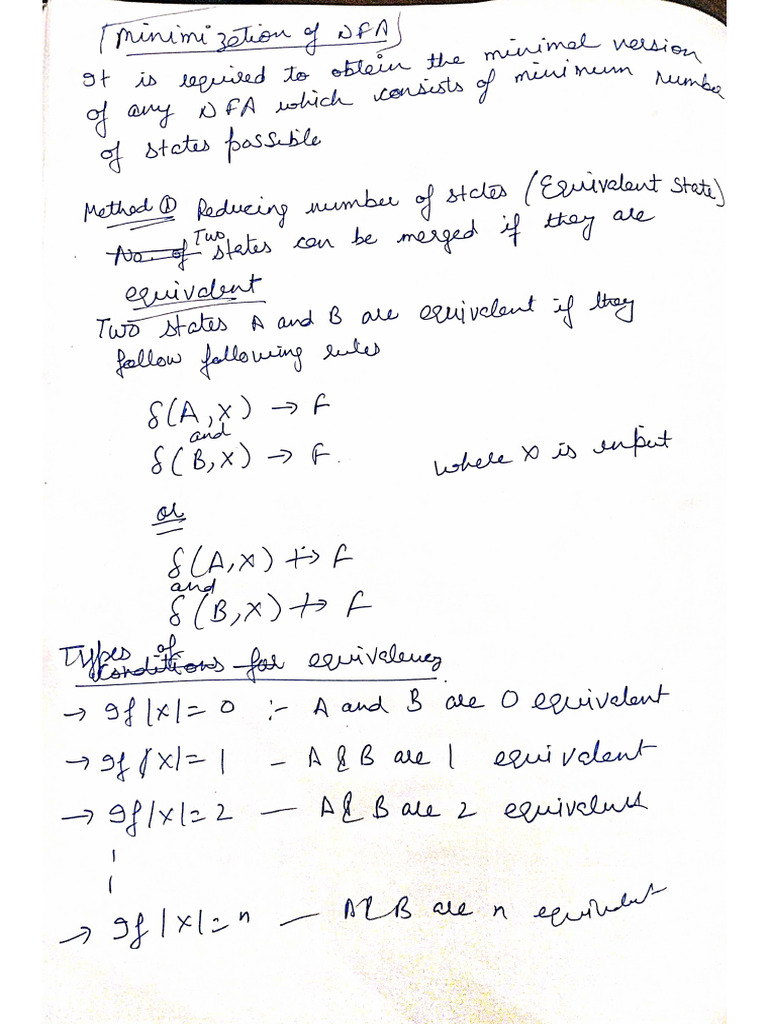 Minimization of NFA
It is required to obtain the minimal version
of any NFA which consists of minimum number
of states possible
Method ① Reducing number of states (Equivalent State)
No. of Two states can be merged if they are
equivalent
Two states A and B are equivalent if they
follow following rules
δ(A,X) → F
and
δ(B,X) → F.
where X is input
or
δ(A,X) ↛ F
and
δ(B,X) ↛ F
Types of
Conditions for equivalency
→ If |X| = 0 :- A and B are 0 equivalent
→ If |X| = 1 - A & B are 1 equivalent
→ If |X| = 2 — A & B are 2 equivalent
→ If |X| = n — A & B are n equivalent